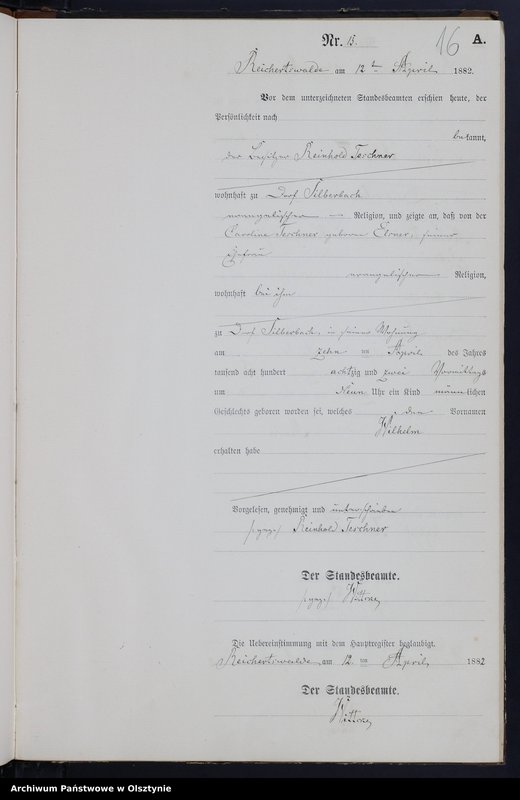 16
Nr. 13.
A.
Reichertswalde am 12 ten April 1882.
Vor dem unterzeichneten Standesbeamten erschien heute, der
Persönlichkeit nach
bekannt,
der Besitzer Reinhold Terchner
wohnhaft zu Dorf Silberbach
evangelischer Religion, und zeigte an, daß von der
Caroline Terchner geboren seiner
Ehefrau
evangelischer Religion,
wohnhaft bei ihm
zu Dorf Silberbach, in seiner Wohnung
am zehn ten April des Jahres
tausend acht hundert achtzig und zwei Vormittags
um Neun Uhr ein Kind männlichen
Geschlechts geboren worden sei, welches den Vornamen
Wilhelm
erhalten habe
Vorgelesen, genehmigt und unterschrieben
(gez.) Reinhold Terchner
Der Standesbeamte.
(gez.)
Die Uebereinstimmung mit dem Hauptregister beglaubigt.
Reichertswalde am 12. ten April 1882
Der Standesbeamte.
Archiwum Państwowe w Olsztynie